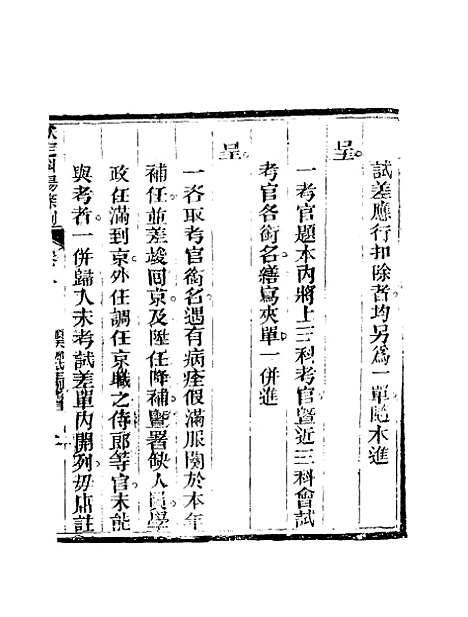 試差應行扣除者均另爲一單隨本進
呈
一考官題本內將上三科考官暨近三科會試
考官各銜名繕寫夾單一併進
呈
一咨取考官銜名遇有病痊假滿服闋於本年
補任並差竣回京及陞任降補暨署缺人員學
政任滿到京外任調任京職之侍郎等官未能
與考者一併歸入未考試差單內開列毋庸註
欽定科場條例